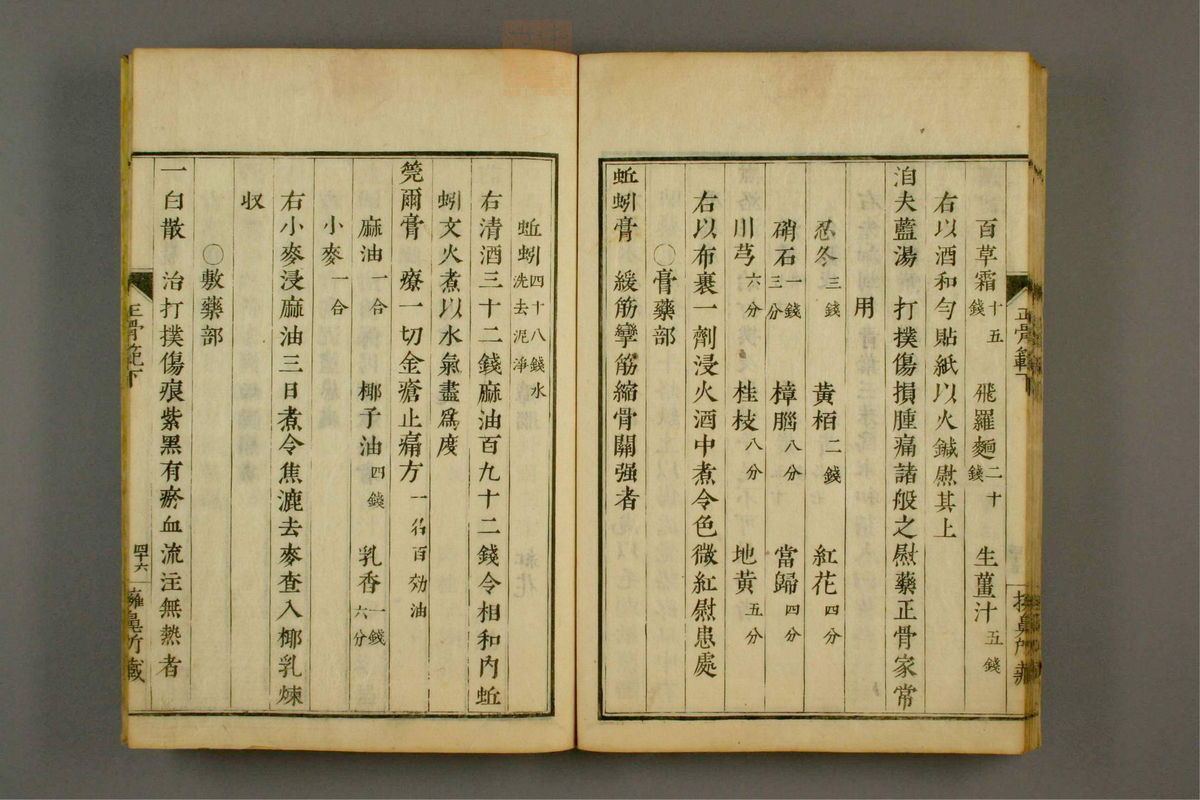 百草霜十五錢 飛羅麵二十錢 生薑汁五錢
右以酒和勻貼紙以火鍼熨其上
洎夫藍湯 打撲傷損腫痛諸般之熨藥正骨家常
用
忍冬三錢 黃栢二錢 紅花四分
硝石一錢三分 樟腦八分 當歸四分
川芎六分 桂枝八分 地黃五分
右以布裹一劑浸火酒中煮令色微紅熨患處
〇膏藥部
蚯蚓膏 緩筋攣筋縮骨關强者
蚯蚓四十八錢水洗去泥淨
右清酒三十二錢麻油百九十二錢令相和內蚯
蚓文火煮以水氣盡爲度
莞爾膏 療一切金瘡止痛方一名百効油
麻油一合 椰子油四錢 乳香一錢六分
小麥一合
右小麥浸麻油三日煮令焦漉去麥查入椰乳煉
収
〇敷藥部
一白散 治打撲傷痕紫黑有瘀血流注無熱者
正骨範下
四十六